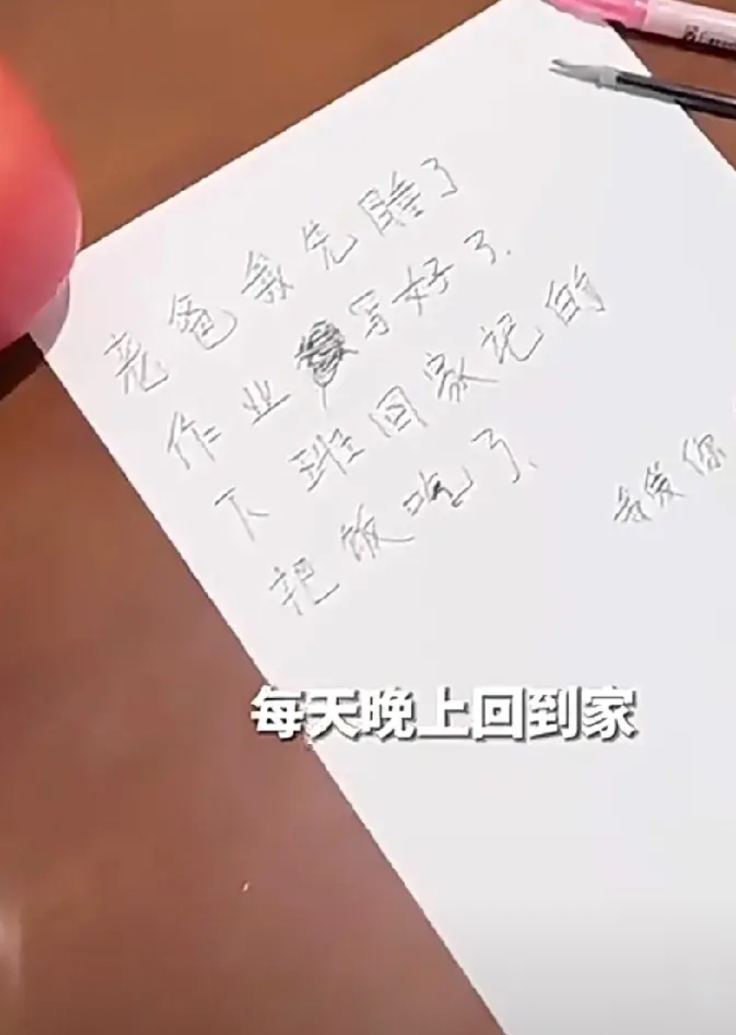 老爸我先睡了
作业写好了.
下班回家记的
把饭吃了、
我爱你
每天晚上回到家